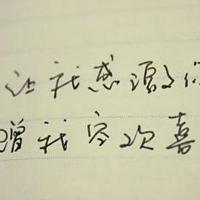 让我感谢你
赠我空欢喜